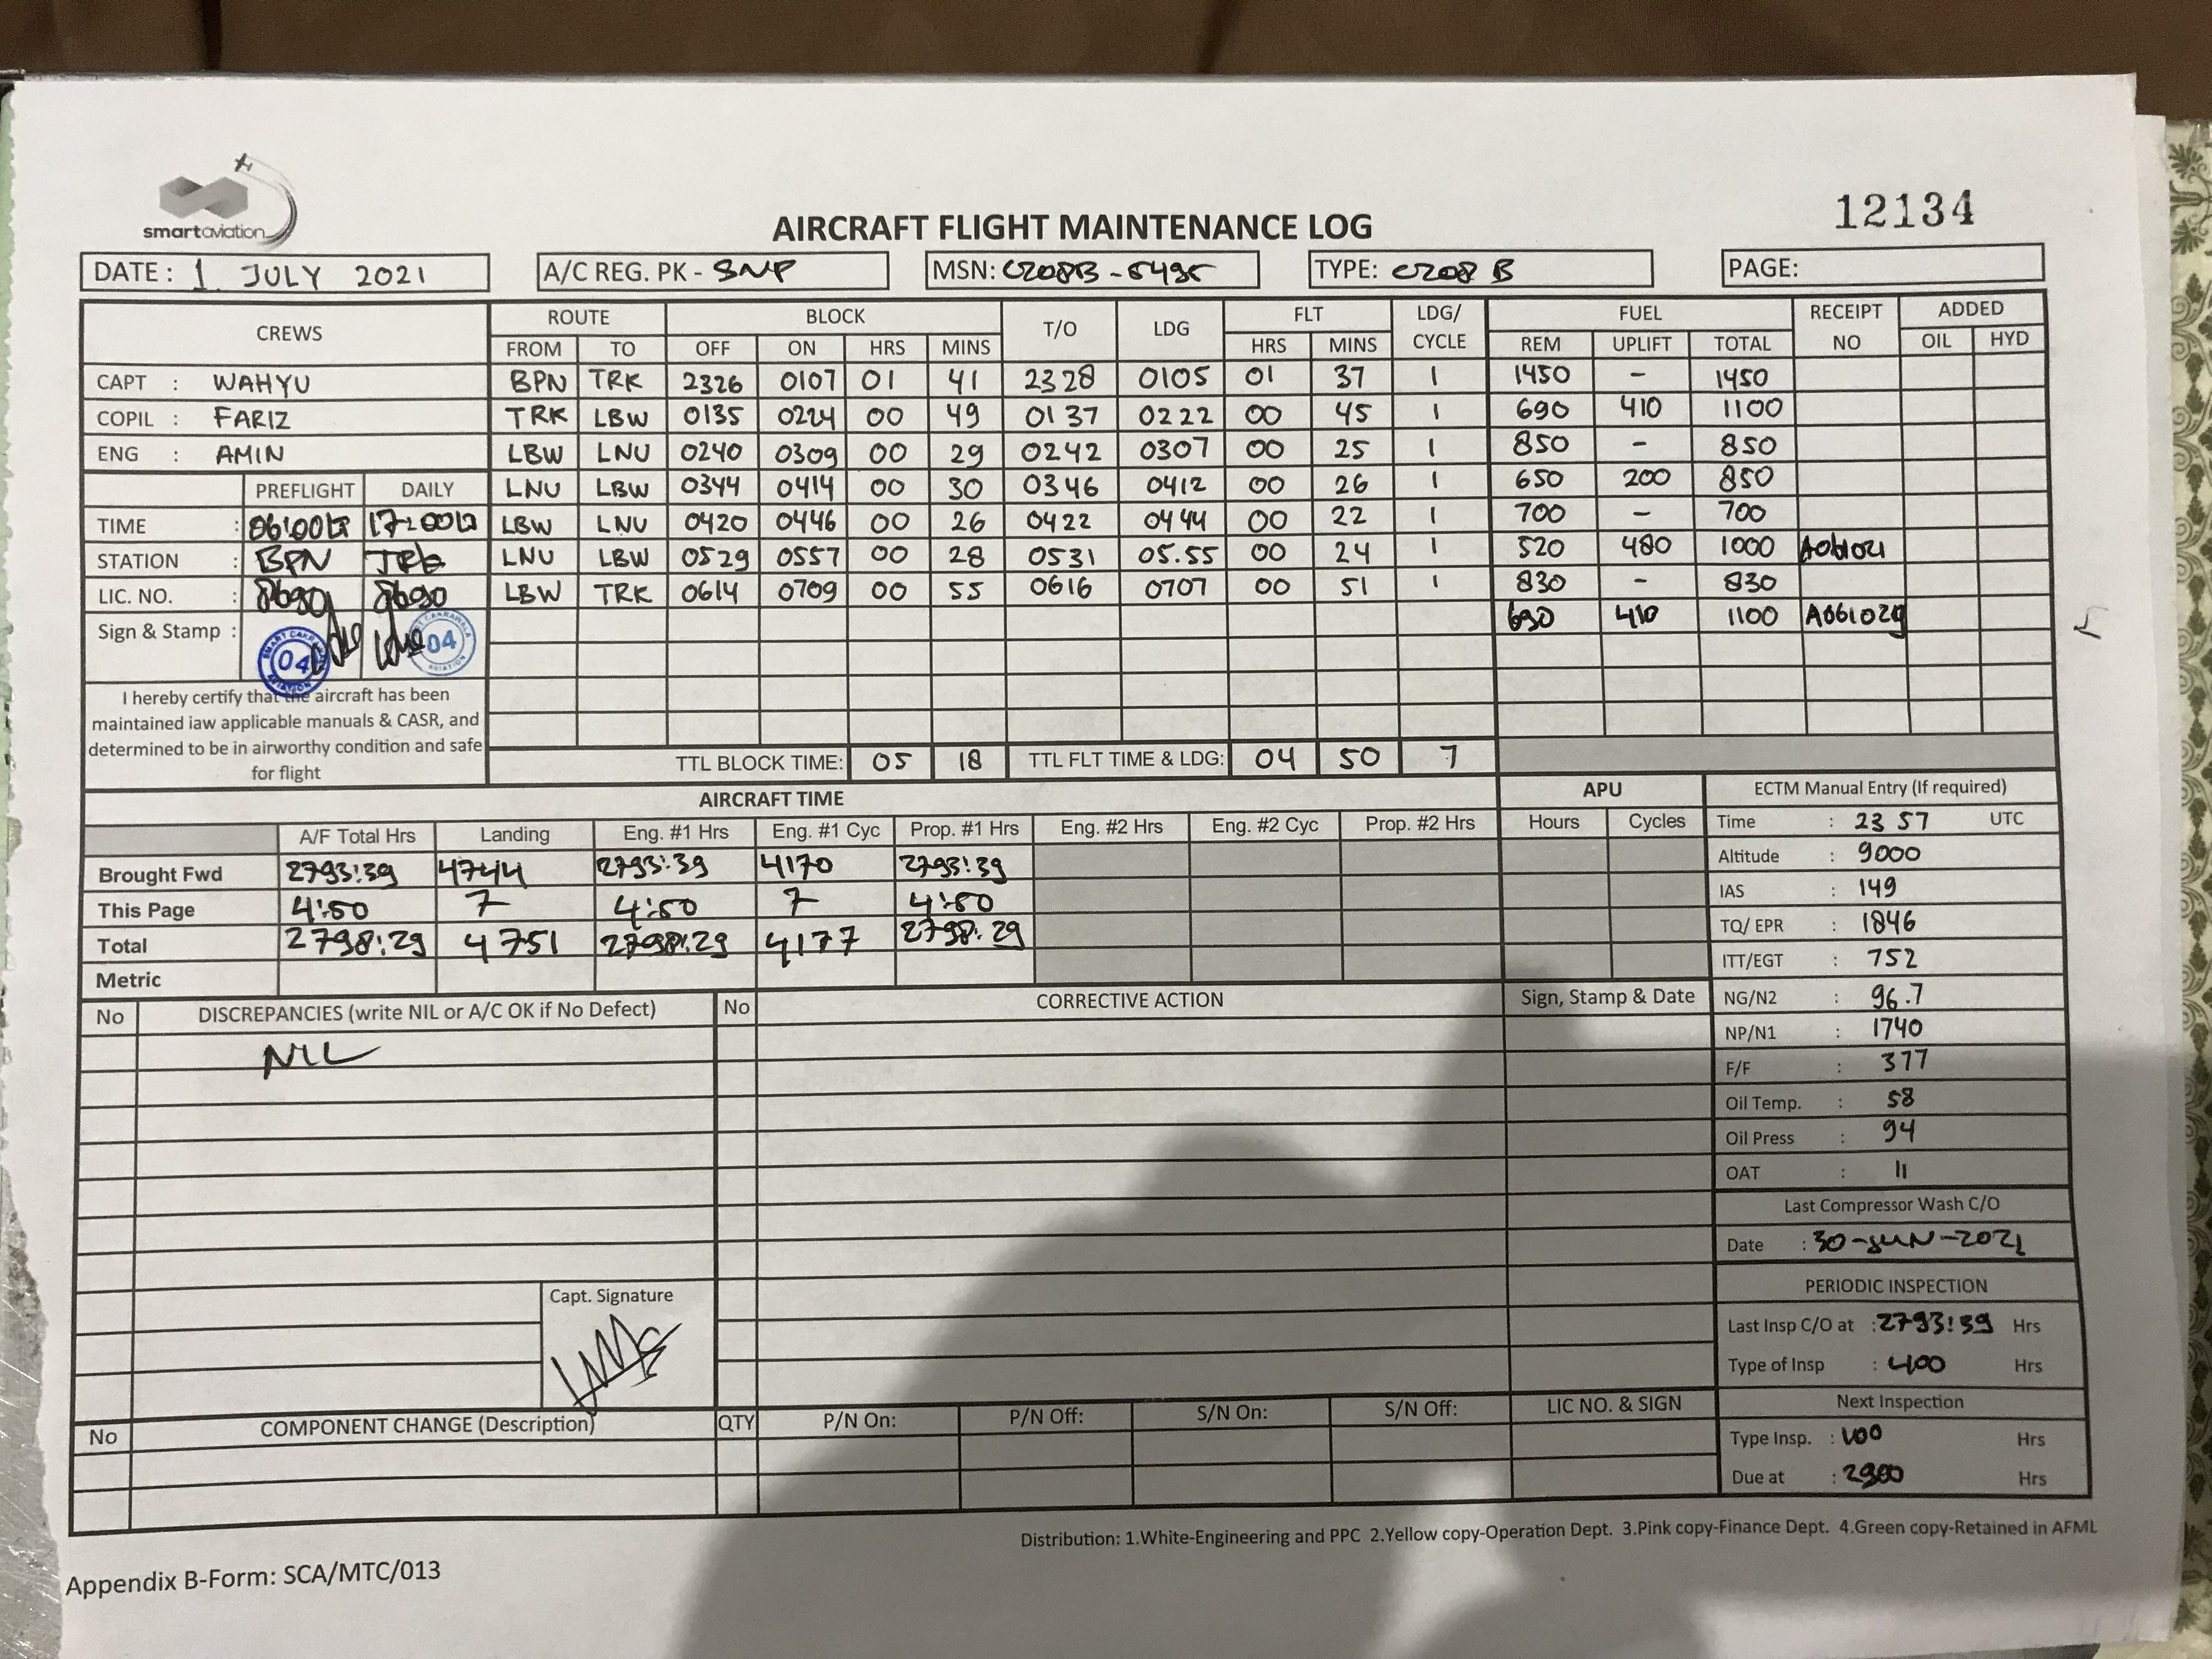 smartaviation
12134
AIRCRAFT FLIGHT MAINTENANCE LOG
DATE : 1 JULY 2021 A/C REG. PK - SNP MSN: C208B-5495 TYPE: C208 B PAGE:
CREWS ROUTE BLOCK T/O LDG FLT LDG/ CYCLE FUEL RECEIPT NO ADDED
FROM TO OFF ON HRS MINS HRS MINS REM UPLIFT TOTAL OIL HYD
CAPT : WAHYU BPN TRK 2326 0107 01 41 2328 0105 01 37 1 1450 - 1450
COPIL : FARIZ TRK LBW 0135 0224 00 49 0137 0222 00 45 1 690 410 1100
ENG : AMIN LBW LNU 0240 0309 00 29 0242 0307 00 25 1 850 - 850
PREFLIGHT DAILY LNU LBW 0344 0414 00 30 0346 0412 00 26 1 650 200 850
TIME : 06:00 17:00 LBW LNU 0420 0446 00 26 0422 0444 00 22 1 700 - 700
STATION : BPN TRK LNU LBW 0529 0557 00 28 0531 05.55 00 24 1 520 480 1000
LIC. NO. : 8690 8690 LBW TRK 0614 0709 00 55 0616 0707 00 51 1 830 - 830
Sign & Stamp : 04 04 690 410 1100
I hereby certify that the aircraft has been
maintained iaw applicable manuals & CASR, and
determined to be in airworthy condition and safe
for flight
TTL BLOCK TIME: 05 18 TTL FLT TIME & LDG: 04 50 7
AIRCRAFT TIME APU ECTM Manual Entry (If required)
A/F Total Hrs Landing Eng. #1 Hrs Eng. #1 Cyc Prop. #1 Hrs Eng. #2 Hrs Eng. #2 Cyc Prop. #2 Hrs Hours Cycles Time : 23 57 UTC
Brought Fwd 2793:39 4744 2793:39 4170 2793:39 Altitude : 9000
This Page 4:50 7 4:50 7 4:50 IAS : 149
Total 2798:29 4751 2798:29 4177 2798:29 TQ/ EPR : 1846
Metric ITT/EGT : 752
No DISCREPANCIES (write NIL or A/C OK if No Defect) No CORRECTIVE ACTION Sign, Stamp & Date NG/N2 : 96.7
NIL NP/N1 : 1740
F/F : 377
Oil Temp. : 58
Oil Press : 94
OAT : 11
Last Compressor Wash C/O
Date : 30-JUN-2021
Capt. Signature PERIODIC INSPECTION
Last Insp C/O at : 2793:39 Hrs
Type of Insp : 400 Hrs
No COMPONENT CHANGE (Description) QTY P/N On: P/N Off: S/N On: S/N Off: LIC NO. & SIGN Next Inspection
Type Insp. : 100 Hrs
Due at : 2900 Hrs
Distribution: 1.White-Engineering and PPC 2.Yellow copy-Operation Dept. 3.Pink copy-Finance Dept. 4.Green copy-Retained in AFML
Appendix B-Form: SCA/MTC/013